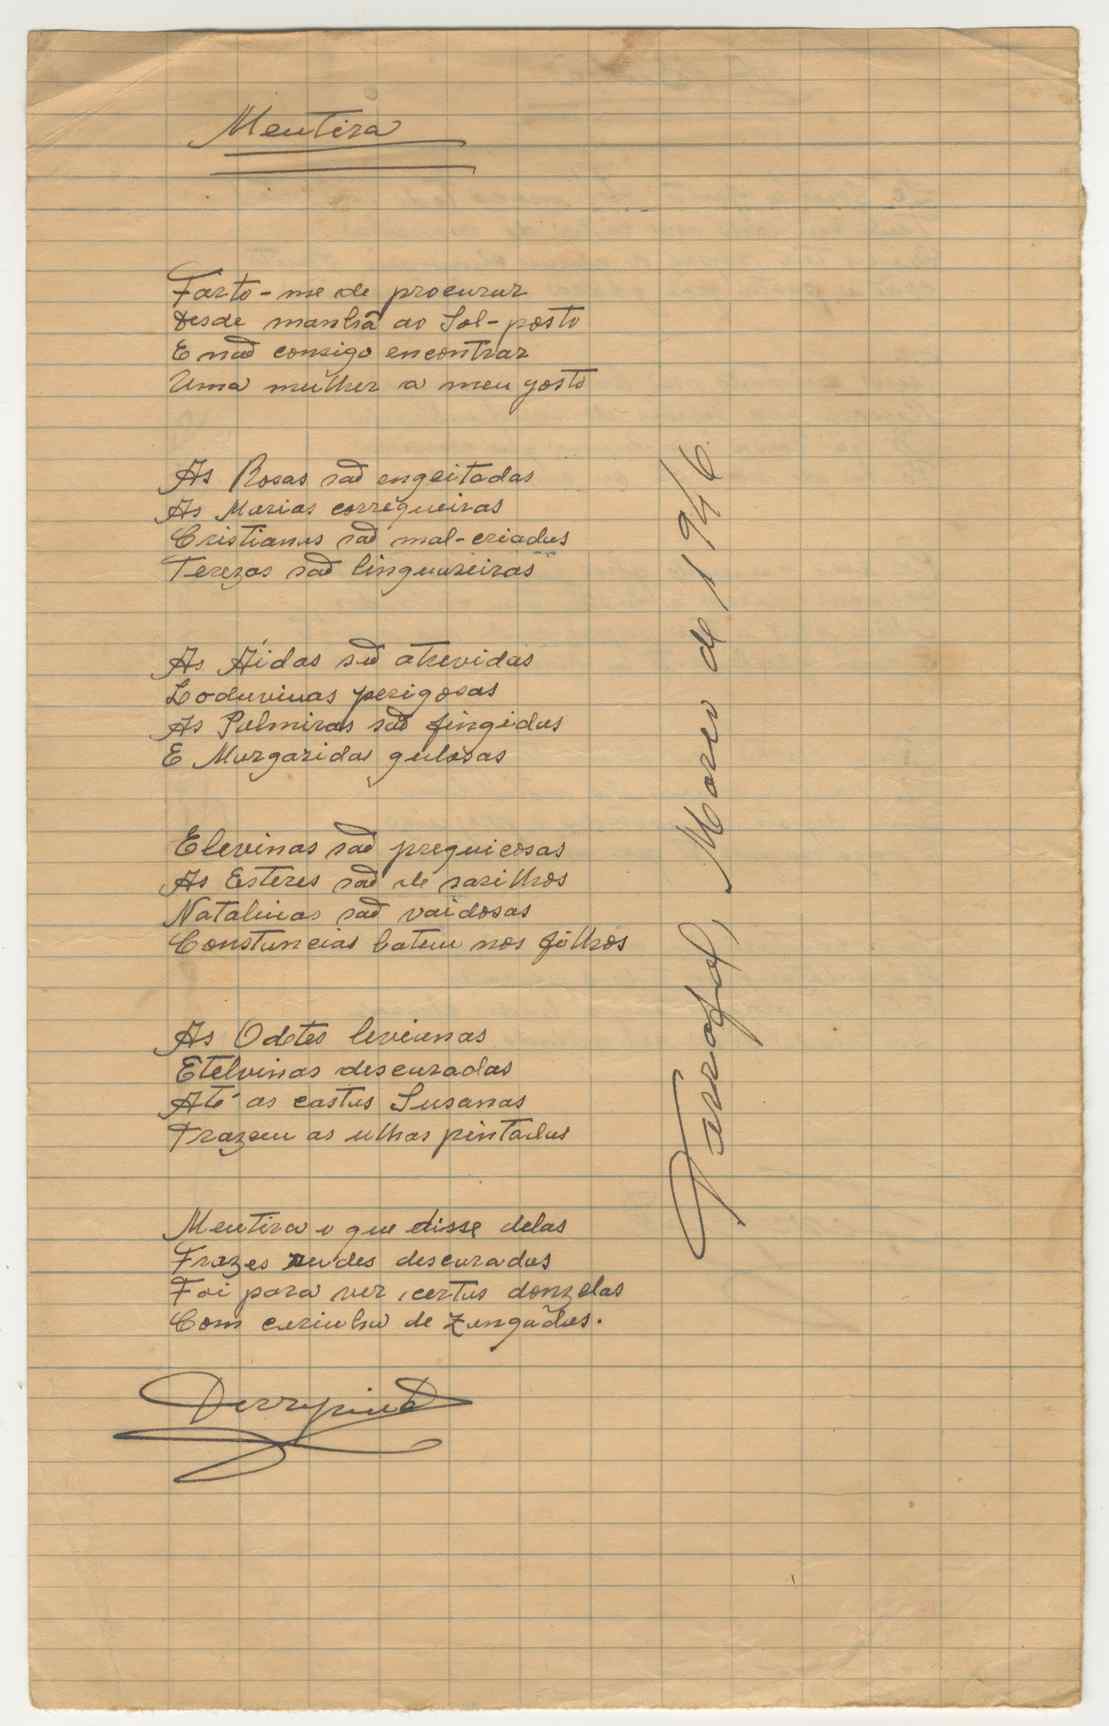 Mentira
Farto-me de procurar
Desde manhã ao Sol-posto
E não consigo encontrar
Uma mulher a meu gosto
As Rosas são engeitadas
As Marias corriqueiras
Cristianas são mal-criadas
Terezas são linguareiras
As Aídas são atrevidas
Loduvinas perigosas
As Palmiras são fingidas
E Margaridas gulosas
Elevinas são preguiçosas
As Esteres são de sarilhos
Natalinas são vaidosas
Constancias batem nos filhos
As Odetes levianas
Etelvinas descuradas
Até as castas Susanas
Trazem as unhas pintadas
Mentira o que disse delas
Frazes rudes descuradas
Foi para ver certas donzelas
Com carinha de zangadas.
Tarrafal, Março de 1946